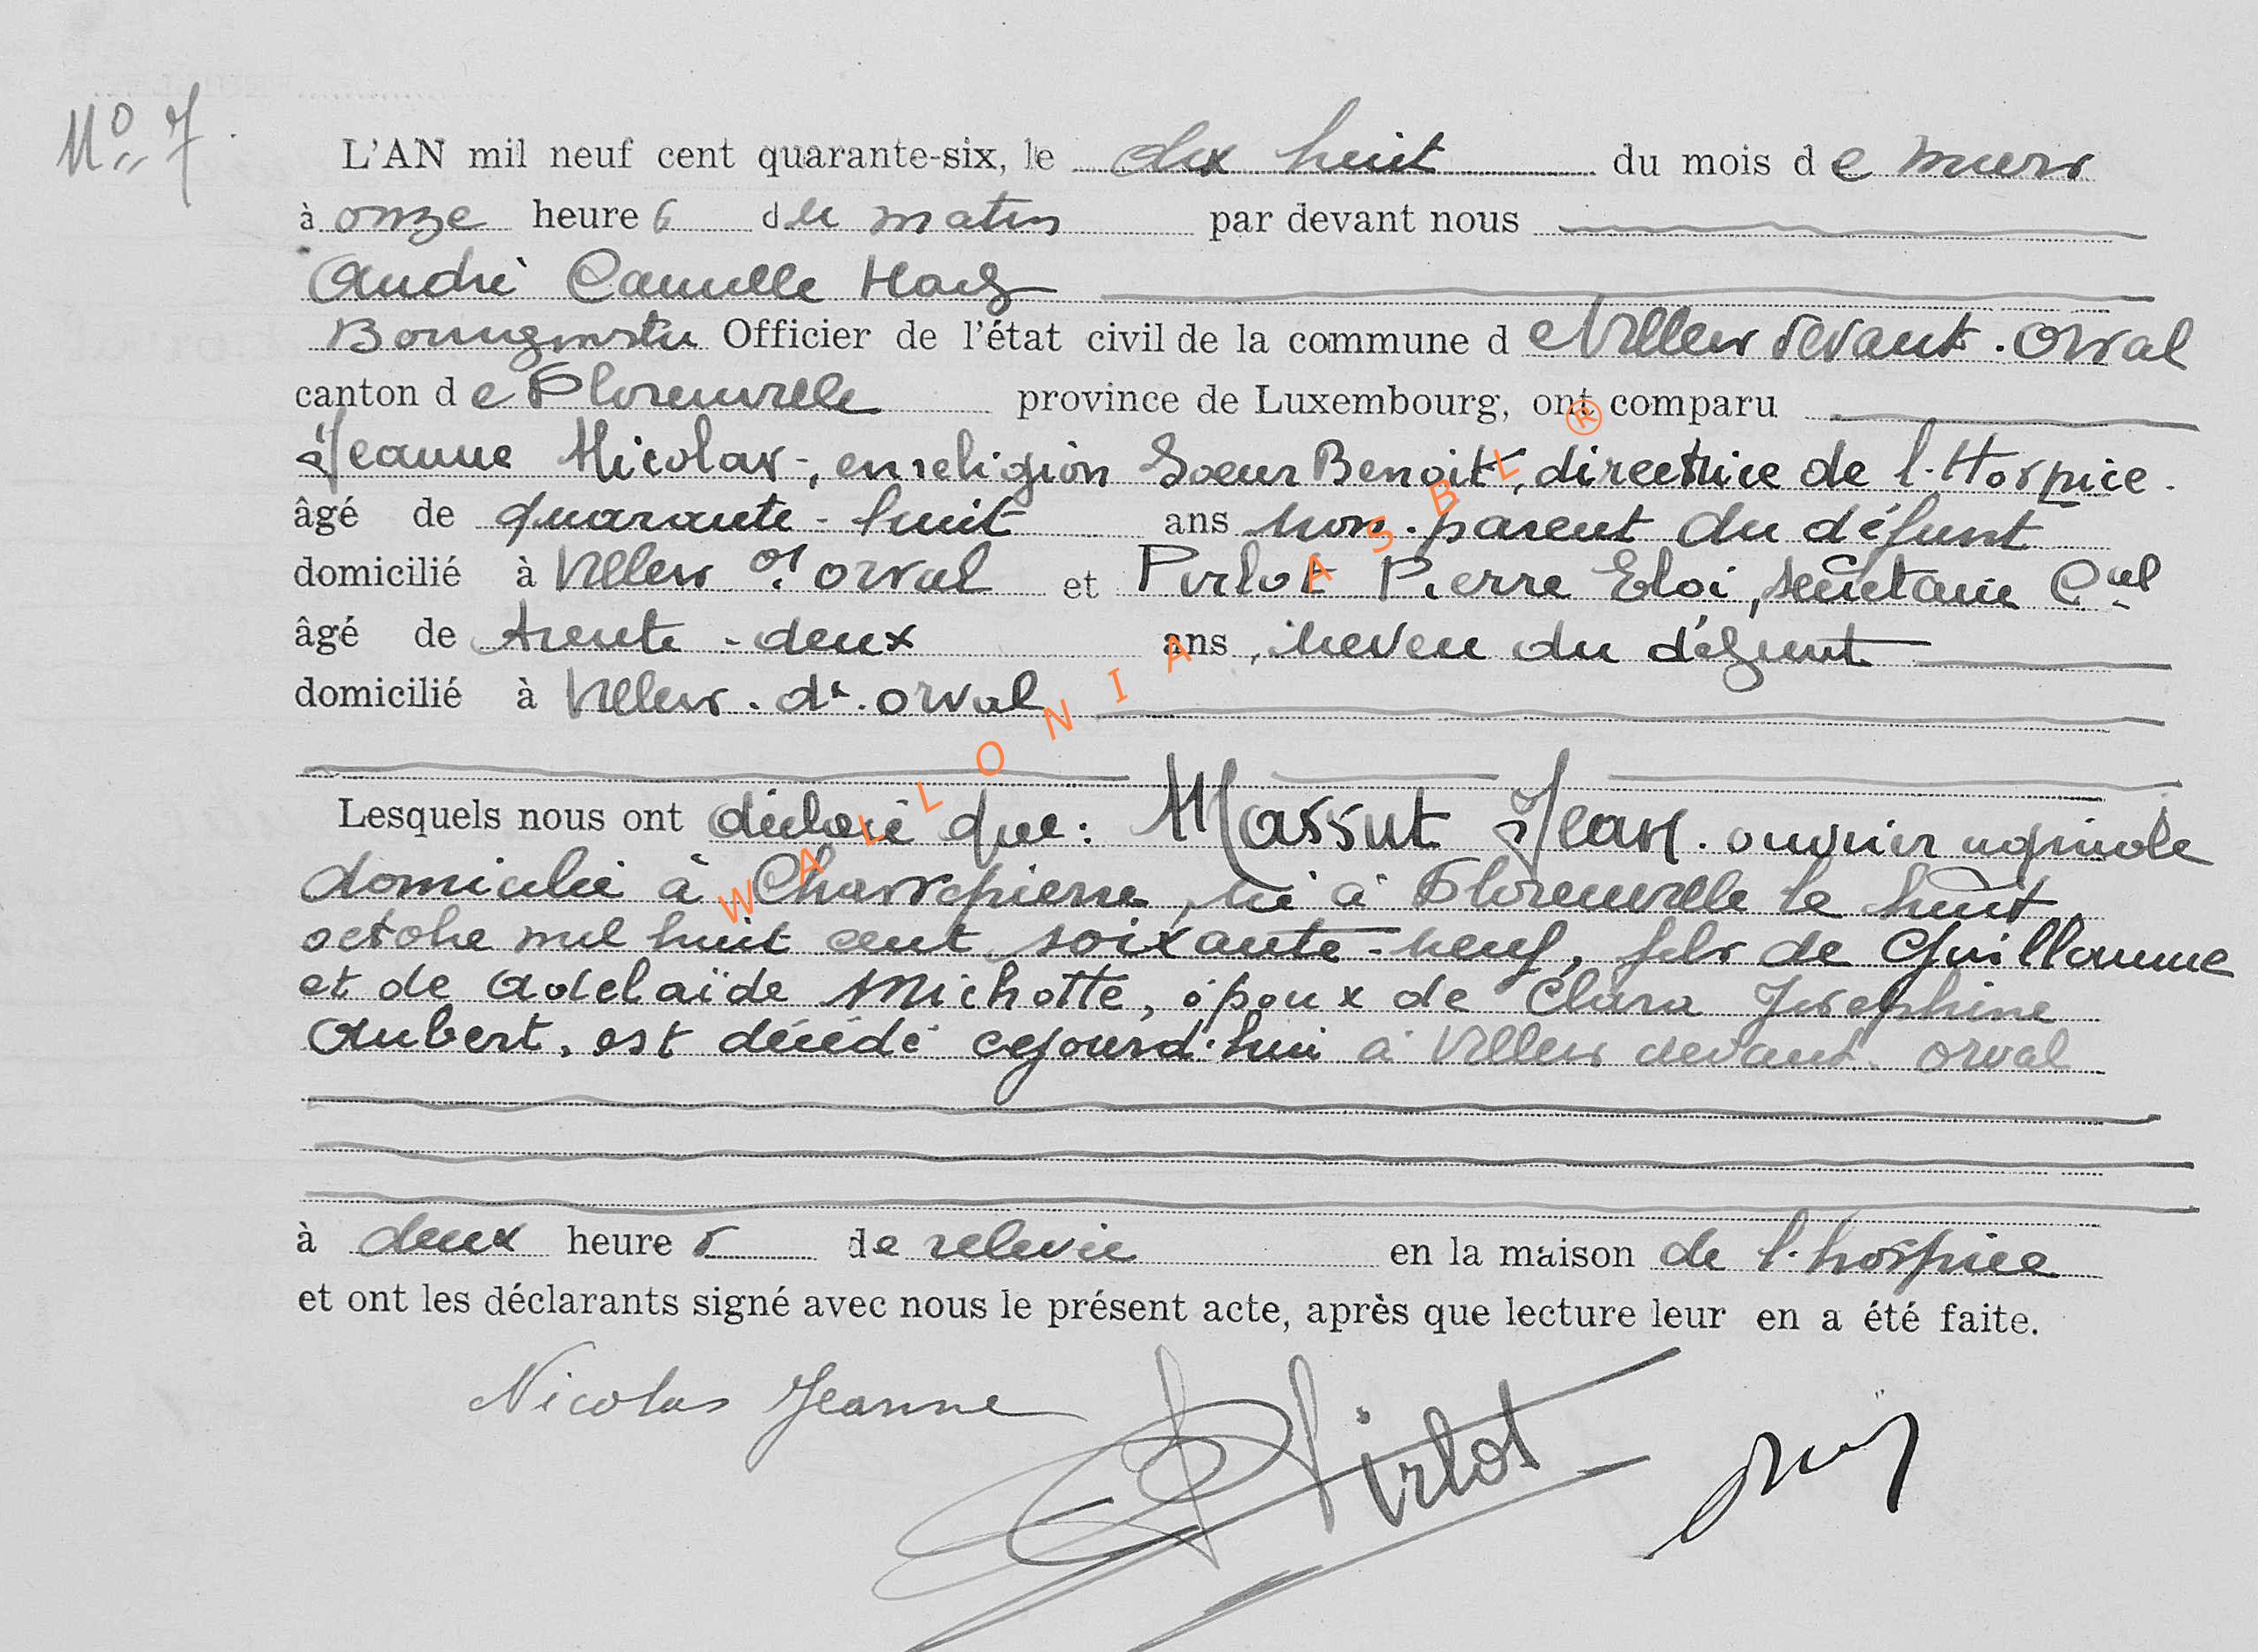 No 7.
L'AN mil neuf cent quarante-six, le dix huit du mois de mars
à onze heures du matin par devant nous
André Camille
Bourgmestre Officier de l'état civil de la commune de Villers devant-Orval
canton de Florenville province de Luxembourg, ont comparu
Jeanne Nicolas, en religion Soeur Benoit, directrice de l'Hospice.
âgé de quarante-huit ans non-parent du défunt
domicilié à Villers dt orval et Pirlot Pierre Eloi, secrétaire Cual
âgé de trente-deux ans, neveu du défunt
domicilié à Villers-dt-orval
Lesquels nous ont déclaré que: Massut Jean. ouvrier agricole
domicilié à Chassepierre, né à Florenville le huit
octobre mil huit cent soixante-neuf, fils de Guillaume
et de Adelaïde Michotte, époux de Clara Josephine
Aubert, est décédé cejourd'hui à Villers devant-orval
à deux heures de relevée en la maison de l'hospice
et ont les déclarants signé avec nous le présent acte, après que lecture leur en a été faite.
Nicolas Jeanne
Pirlot
WALLONIA ASBL ®